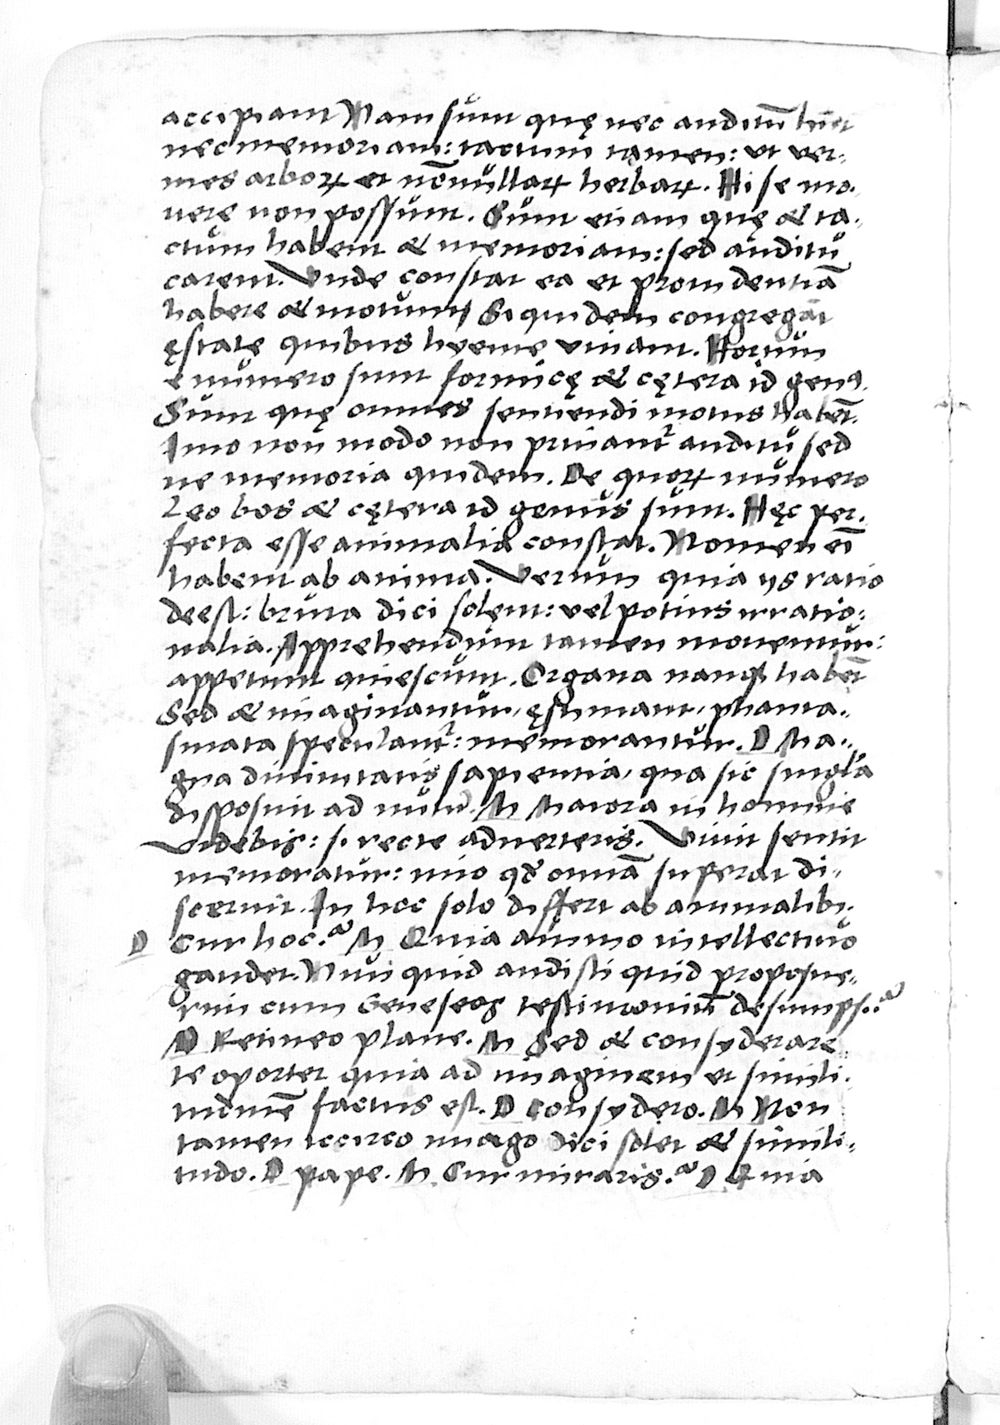 accipiant Nam sunt quę nec auditū hn̄t
nec memoriam: tactum tamen: ut ver-
mes arborꝝ et nōnullarꝝ herbarꝝ. Hi se mo-
verę non possunt. Sunt etiam quę & ta-
ctum habent & memoriam: sed auditū
carent. Unde constat ea et providentiā
habere & motum/ Siquidem congregāt
ęstatę quibus hyeme vivant. Horum
e numero sunt formicę & cętera id genꝰ.
Sunt quę omnes sentiendi motus habēt.
Imo non modo non privant̄ auditu sed
ne memoria quidem. De quorꝝ numero
Leo bos & cętera id genus sunt. Hęc per-
fecta esse animalia constat. Nomen eī
habent ab anima. Verum quia ijs ratio
deest: bruta dici solent: vel potius irratio-
nalia. Apprehendunt tamen moventur:
appetunt quiescunt. Organa nanqꝫ habēt
Sed & imaginantur, ęstimant, phanta-
smata speculant̄: memorantur. D Ma-
gna divinitatis sapientia, qua sic singl'a
disposuit ad nutū. M Maiora in homine
videbis: si recte adverteris. Vivit sentit
memoratur: imo qd̄ omnia superat di-
scernit. In hoc solo differt ab animalibꝫ.
D Cur hoc? M Quia animo intellectivo
gaudet. Nunquid audisti quid proposue-
rim cum Geneseos testimoniū desumpsi?
D Retineo plane. M Sed & consyderare
te oportet quia ad imaginem et simili-
tudinē factus est. D Consydero. M Non
tamen iccirco imago dici solet & simili-
tudo. D Pape. M Cur miraris? D Quia